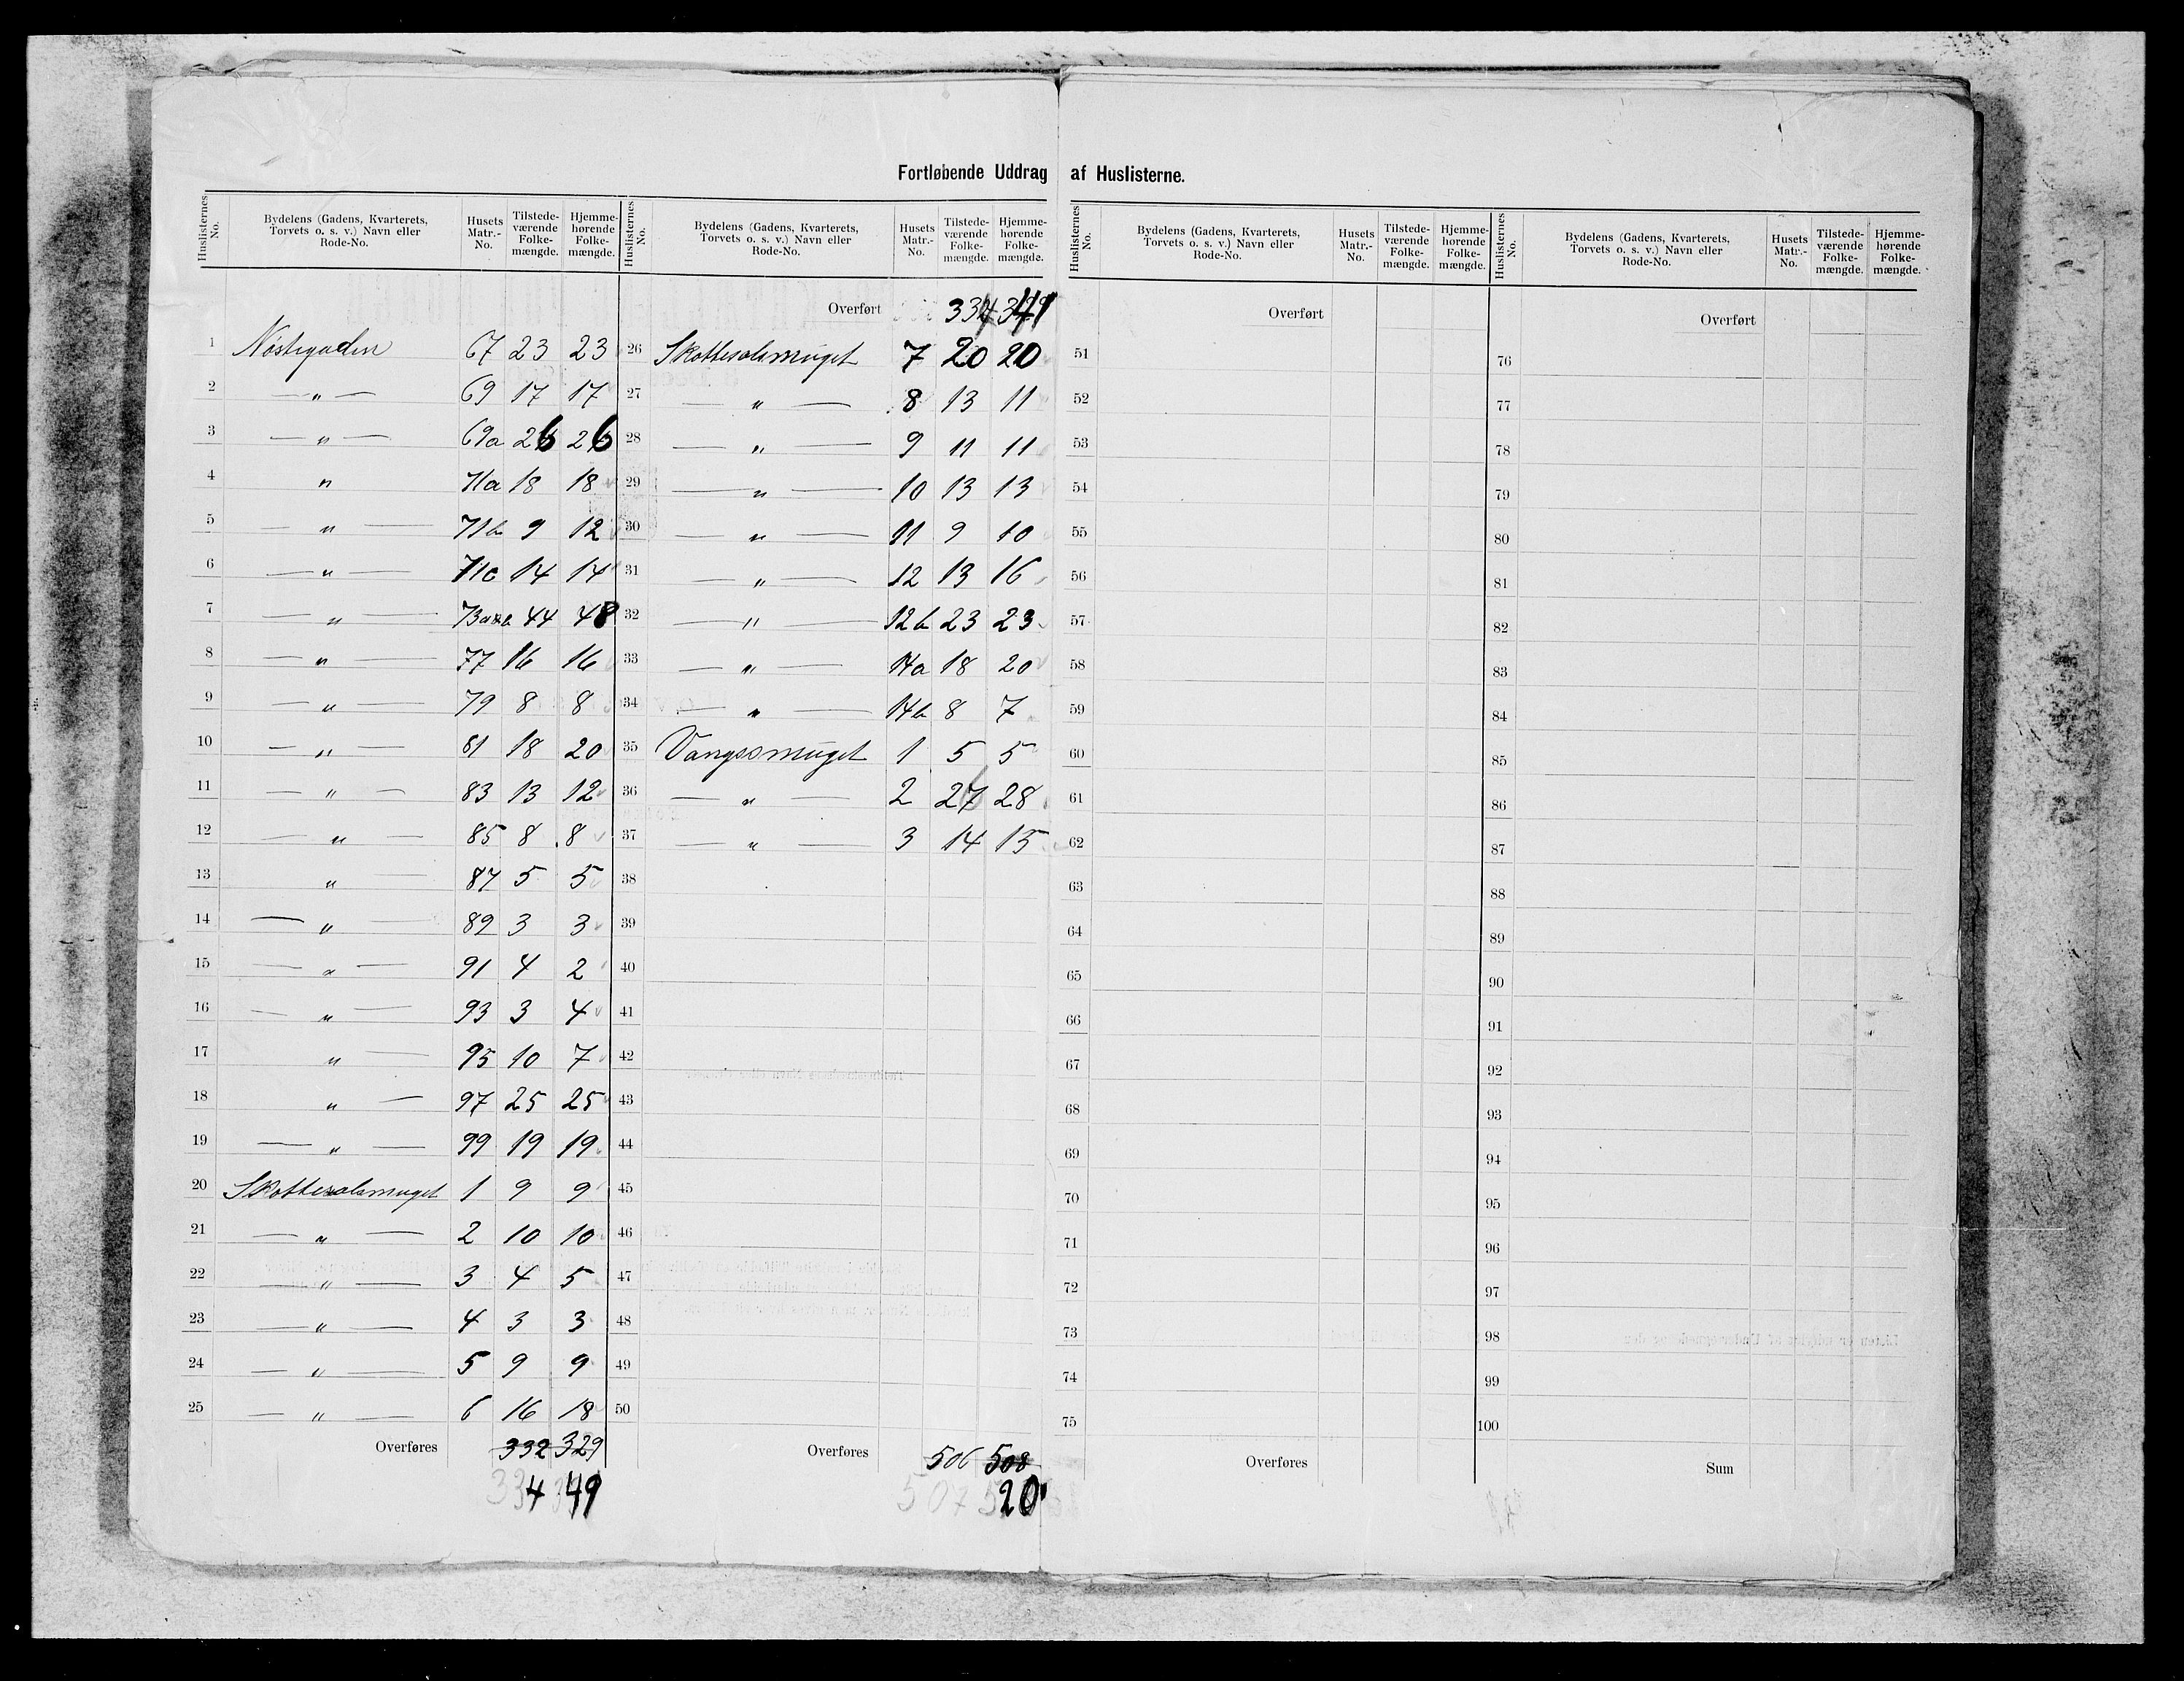 Fortløbende Uddrag af Huslisterne.
Huslisternes No. Bydelens (Gadens, Kvarterets, Torvets o. s. v.) Navn eller Rode-No. Husets Matr.-No. Tilstedeværende Folkemængde. Hjemmehørende Folkemængde.
1 Nöstegaden 67 23 23
2 — „ — 69 17 17
3 — „ — 69a 26 26
4 „ 71a 18 18
5 — „ — 71b 9 12
6 — „ — 71c 14 14
7 — „ — 73a&b 44 48
8 — „ — 77 16 16
9 — „ — 79 8 8
10 — „ — 81 18 20
11 — „ — 83 13 12
12 — „ — 85 8 8
13 „ — 87 5 5
14 — „ — 89 3 3
15 — „ — 91 4 2
16 — „ — 93 3 4
17 „ — 95 10 7
18 „ — 97 25 25
19 — „ — 99 19 19
20 Skottesalsmuget 1 9 9
21 — „ — 2 10 10
22 — „ — 3 4 5
23 — „ — 4 3 3
24 — „ — 5 9 9
25 — „ — 6 16 18
Overføres 332 329
334 49
Huslisternes No. Bydelens (Gadens, Kvarterets, Torvets o. s. v.) Navn eller Rode-No. Husets Matr.-No. Tilstedeværende Folkemængde. Hjemmehørende Folkemængde.
Overført 334 341
26 Skottesalsmuget 7 20 20
27 — „ — 8 13 11
28 — „ — 9 11 11
29 — „ — 10 13 13
30 — „ — 11 9 10
31 — „ — 12 13 16
32 — „ — 12b 23 23
33 — „ — 14a 18 20
34 — „ — 14b 8 7
35 Vangsmuget 1 5 5
36 — „ — 2 27 28
37 — „ — 3 14 15
38
39
40
41
42
43
44
45
46
47
48
49
50
Overføres 506 508
507 20
Huslisternes No. Bydelens (Gadens, Kvarterets, Torvets o. s. v.) Navn eller Rode-No. Husets Matr.-No. Tilstedeværende Folkemængde. Hjemmehørende Folkemængde.
Overført
51
52
53
54
55
56
57
58
59
60
61
62
63
64
65
66
67
68
69
70
71
72
73
74
75
Overføres
Huslisternes No. Bydelens (Gadens, Kvarterets, Torvets o. s. v.) Navn eller Rode-No. Husets Matr.-No. Tilstedeværende Folkemængde. Hjemmehørende Folkemængde.
Overført
76
77
78
79
80
81
82
83
84
85
86
87
88
89
90
91
92
93
94
95
96
97
98
99
100
Sum